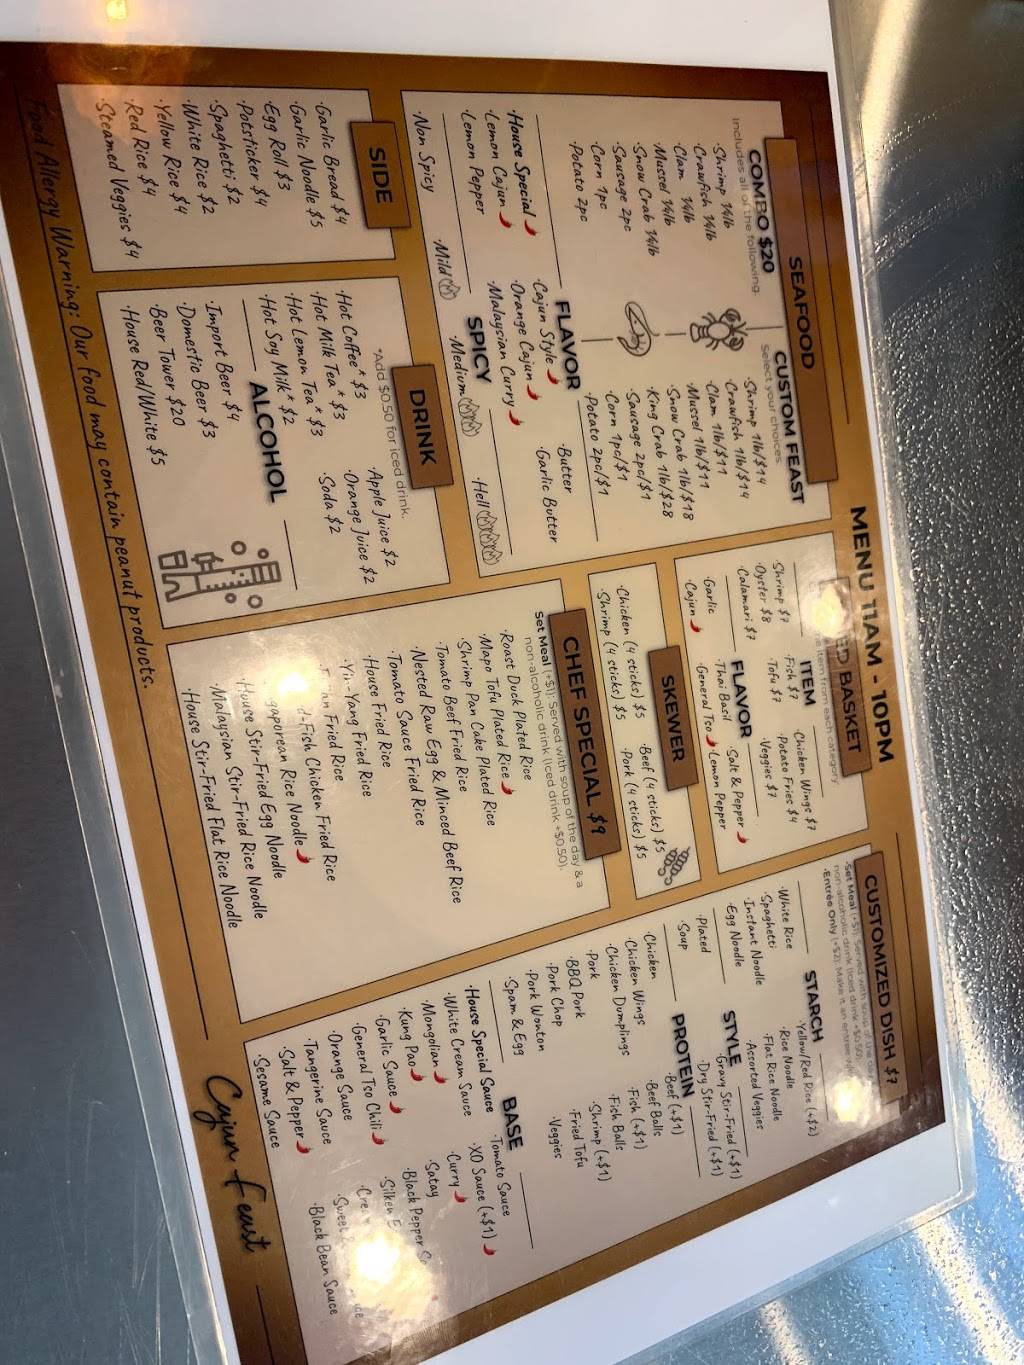 MENU 11AM - 10PM
SEAFOOD
COMBO $20
Includes all of the following.
·Shrimp ¼lb
·Crawfish ¼lb
·Clam ¼lb
·Mussel ¼lb
·Snow Crab ¼lb
·Sausage 2pc
·Corn 1pc
·Potato 2pc
CUSTOM FEAST
Select your choices.
·Shrimp 1lb/$14
·Crawfish 1lb/$14
·Clam 1lb/$11
·Mussel 1lb/$11
·Snow Crab 1lb/$18
·King Crab 1lb/$28
·Sausage 2pc/$1
·Corn 1pc/$1
·Potato 2pc/$1
FLAVOR
·House Special
·Lemon Cajun
·Lemon Pepper
·Cajun Style
·Orange Cajun
·Malaysian Curry
·Butter
·Garlic Butter
SPICY
·Non Spicy
·Mild
·Medium
·Hell
SIDE
·Garlic Bread $4
·Garlic Noodle $5
·Egg Roll $3
·Potsticker $4
·Spaghetti $2
·White Rice $2
·Yellow Rice $4
·Red Rice $4
·Steamed Veggies $4
DRINK
*Add $0.50 for iced drink.
·Hot Coffee* $3
·Hot Milk Tea* $3
·Hot Lemon Tea* $3
·Hot Soy Milk* $2
·Apple Juice $2
·Orange Juice $2
·Soda $2
ALCOHOL
·Import Beer $4
·Domestic Beer $3
·Beer Tower $20
·House Red/White $5
BASKET
item from each category
ITEM
·Shrimp $7
·Oyster $8
·Calamari $7
·Fish $7
·Tofu $7
Chicken Wings $7
·Potato Fries $4
·Veggies $7
FLAVOR
·Garlic
·Cajun
·Thai Basil
·General Tso
·Salt & Pepper
·Lemon Pepper
SKEWER
·Chicken (4 sticks) $5
·Shrimp (4 sticks) $5
·Beef (4 sticks) $5
·Pork (4 sticks) $5
CHEF SPECIAL $9
Set Meal (+$1): Served with soup of the day & a
non-alcoholic drink (Iced drink +$0.50).
·Roast Duck Plated Rice
·Mapo Tofu Plated Rice
·Shrimp Pan Cake Plated Rice
·Tomato Beef Fried Rice
·Nested Raw Egg & Minced Beef Rice
·Tomato Sauce Fried Rice
·House Fried Rice
·Yin-Yang Fried Rice
Fried Rice
-Fish Chicken Fried Rice
Rice Noodle
·House Stir-Fried Egg Noodle
·Malaysian Stir-Fried Rice Noodle
·House Stir-Fried Flat Rice Noodle
CUSTOMIZED DISH $7
·Set Meal (+$1): Served with soup of the
non-alcoholic drink (Iced drink +$0.50).
·Entrée Only (+$2): Make it an entree
STARCH
·White Rice
·Spaghetti
·Instant Noodle
·Egg Noodle
·Yellow/Red Rice (+$2)
·Rice Noodle
·Flat Rice Noodle
·Assorted Veggies
STYLE
·Plated
·Soup
·Gravy Stir-Fried (+$1)
·Dry Stir-Fried (+$1)
PROTEIN
·Chicken
·Chicken Wings
·Chicken Dumplings
·Pork
·BBQ Pork
·Pork Chop
·Pork Wonton
·Spam & Egg
·Beef (+$1)
·Beef Balls
·Fish (+$1)
·Fish Balls
·Shrimp (+$1)
·Fried Tofu
·Veggies
BASE
·House Special Sauce
·White Cream Sauce
·Mongolian
·Kung Pao
·Garlic Sauce
·General Tso Chili
·Orange Sauce
·Tangerine Sauce
·Salt & Pepper
·Sesame Sauce
·Tomato Sauce
·XO Sauce (+$1)
·Curry
·Satay
·Black Pepper
·Silken
·Sweet
·Black Bean Sauce
Food Allergy Warning: Our food may contain peanut products.
Cajun Feast